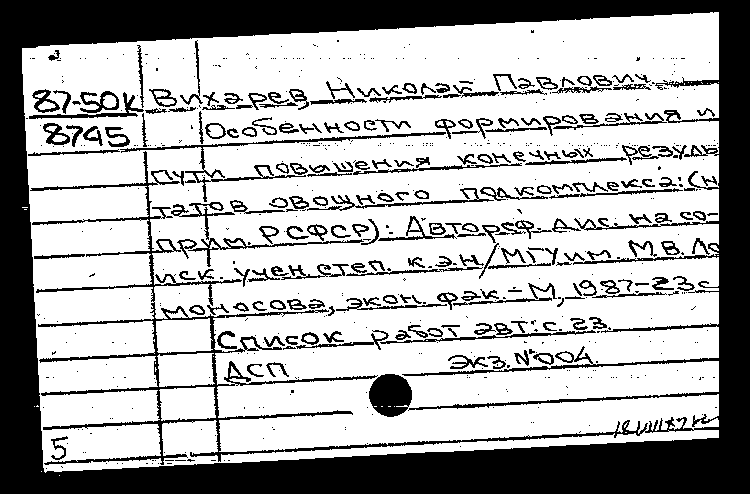 87-50к Вихарев Николай Павлович
8745 Особенности формирования и
пути повышения конечных резуль
татов овощного подкомплекса: (н
прим. РСФСР): Автореф. дис. на со-
иск. учен. степ. к.э.н/МГУ им. М.В. Ло
моносова, экон. фак. - М, 1987-23с
Список работ авт: с. 23
ДСП Экз. №004
5